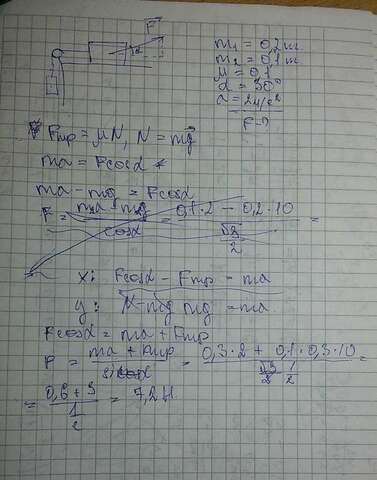 F
α
m₁ = 0,2 кг
m₂ = 0,1 кг
μ = 0,1
α = 30°
a = 2 м/с²
F - ?
Fтр = μN, N = mg
ma = Fcosα
ma - mg = Fcosα
F = (ma - mg)/cosα = (0,1·2 - 0,2·10)/(√3/2) =
x: Fcosα - Fтр = ma
y: N - mg mg = ma
Fcosα = ma + Fтр
F = (ma + Fтр)/ = (0,3·2 + 0,1·0,3·10)/(√3/2 1/2) =
= (0,6 + 3)/(1/2) = 7,2 Н